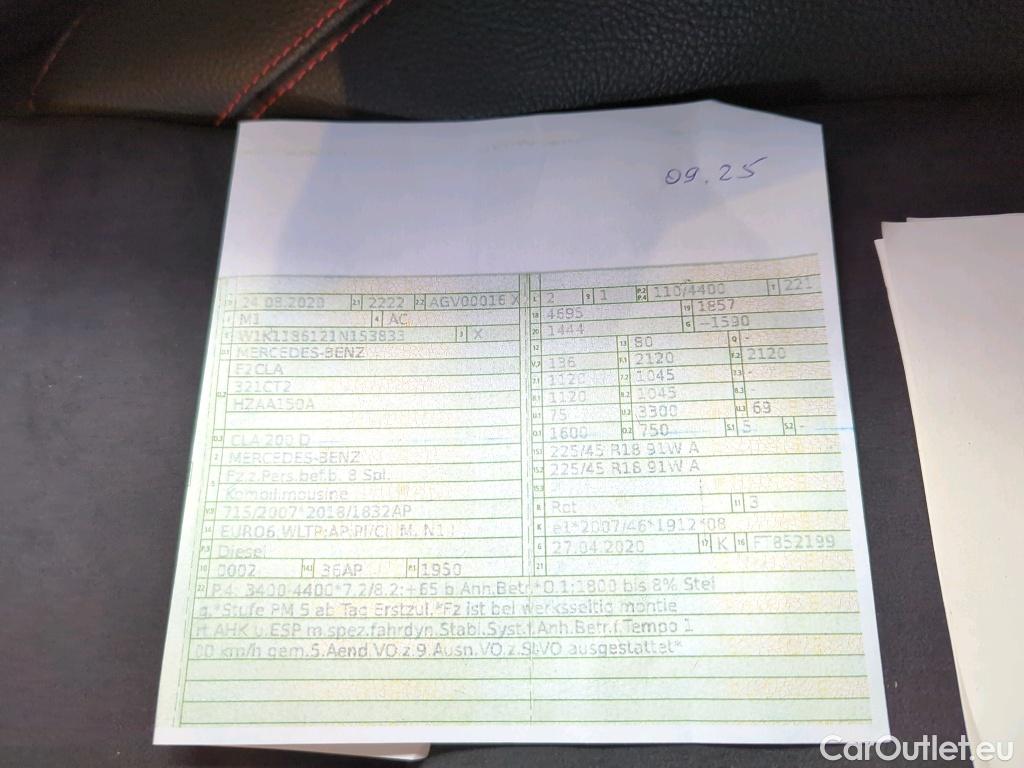 09.25
24.08.2020 2.1 2222 2.2 AGV00016 X
M1 4 AC
W1K1186121N153833 3 X
MERCEDES-BENZ
F2CLA
321CT2
HZAA150A
CLA 200 D
MERCEDES-BENZ
Fz.z.Pers.bef.b. 8 Spl.
Kombilimousine
715/2007*2018/1832AP
EURO6
Diesel
0002 36AP 1950
L 2 9 1 P.2 P.4 110/4400 T 221
18 4695 19 1857
20 1444 G -1590
12 - 13 80 Q -
V.7 136 F.1 2120 F.2 2120
7.1 1120 7.2 1045 7.3 -
8.1 1120 8.2 1045 8.3 -
U.1 75 U.2 3300 U.3 69
O.1 1600 O.2 750 S.1 5 S.2 -
15.1 225/45 R18 91W A
15.2 225/45 R18 91W A
15.3 -
R Rot 11 3
K e1*2007/46*1912*08
6 27.04.2020 17 K 16 FT852199
21
22 P.4: 3400-4400*7.2/8.2:+65 b.Anh.Betr.*O.1:1800 bis 8% Stei
g.*Stufe PM 5 ab Tag Erstzul.*Fz ist bei werksseitig montie
rt.AHK u.ESP m.spez.fahrdyn.Stabl.Syst.f.Anh.Betr.f.Tempo 1
00 km/h gem.5.Aend.VO.z.9.Ausn.VO.z.StVO ausgestattet*
CarOutlet.eu